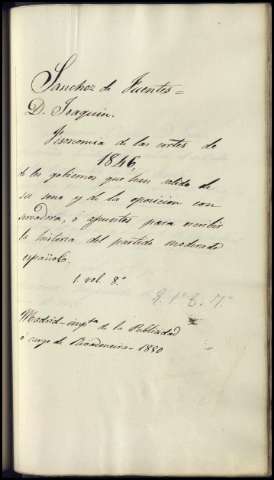 Sanchez de Fuentes =
D. Joaquin.
Fisonomia de las cortes de
1846,
de los gobiernos que han salido de
su seno y de la oposicion con
servadora, ó apuntes para escribir
la historia del partido moderado
español.
1. vol. 8.º
Madrid - impta de la Publicidad
á cargo de Rivadeneira - 1850